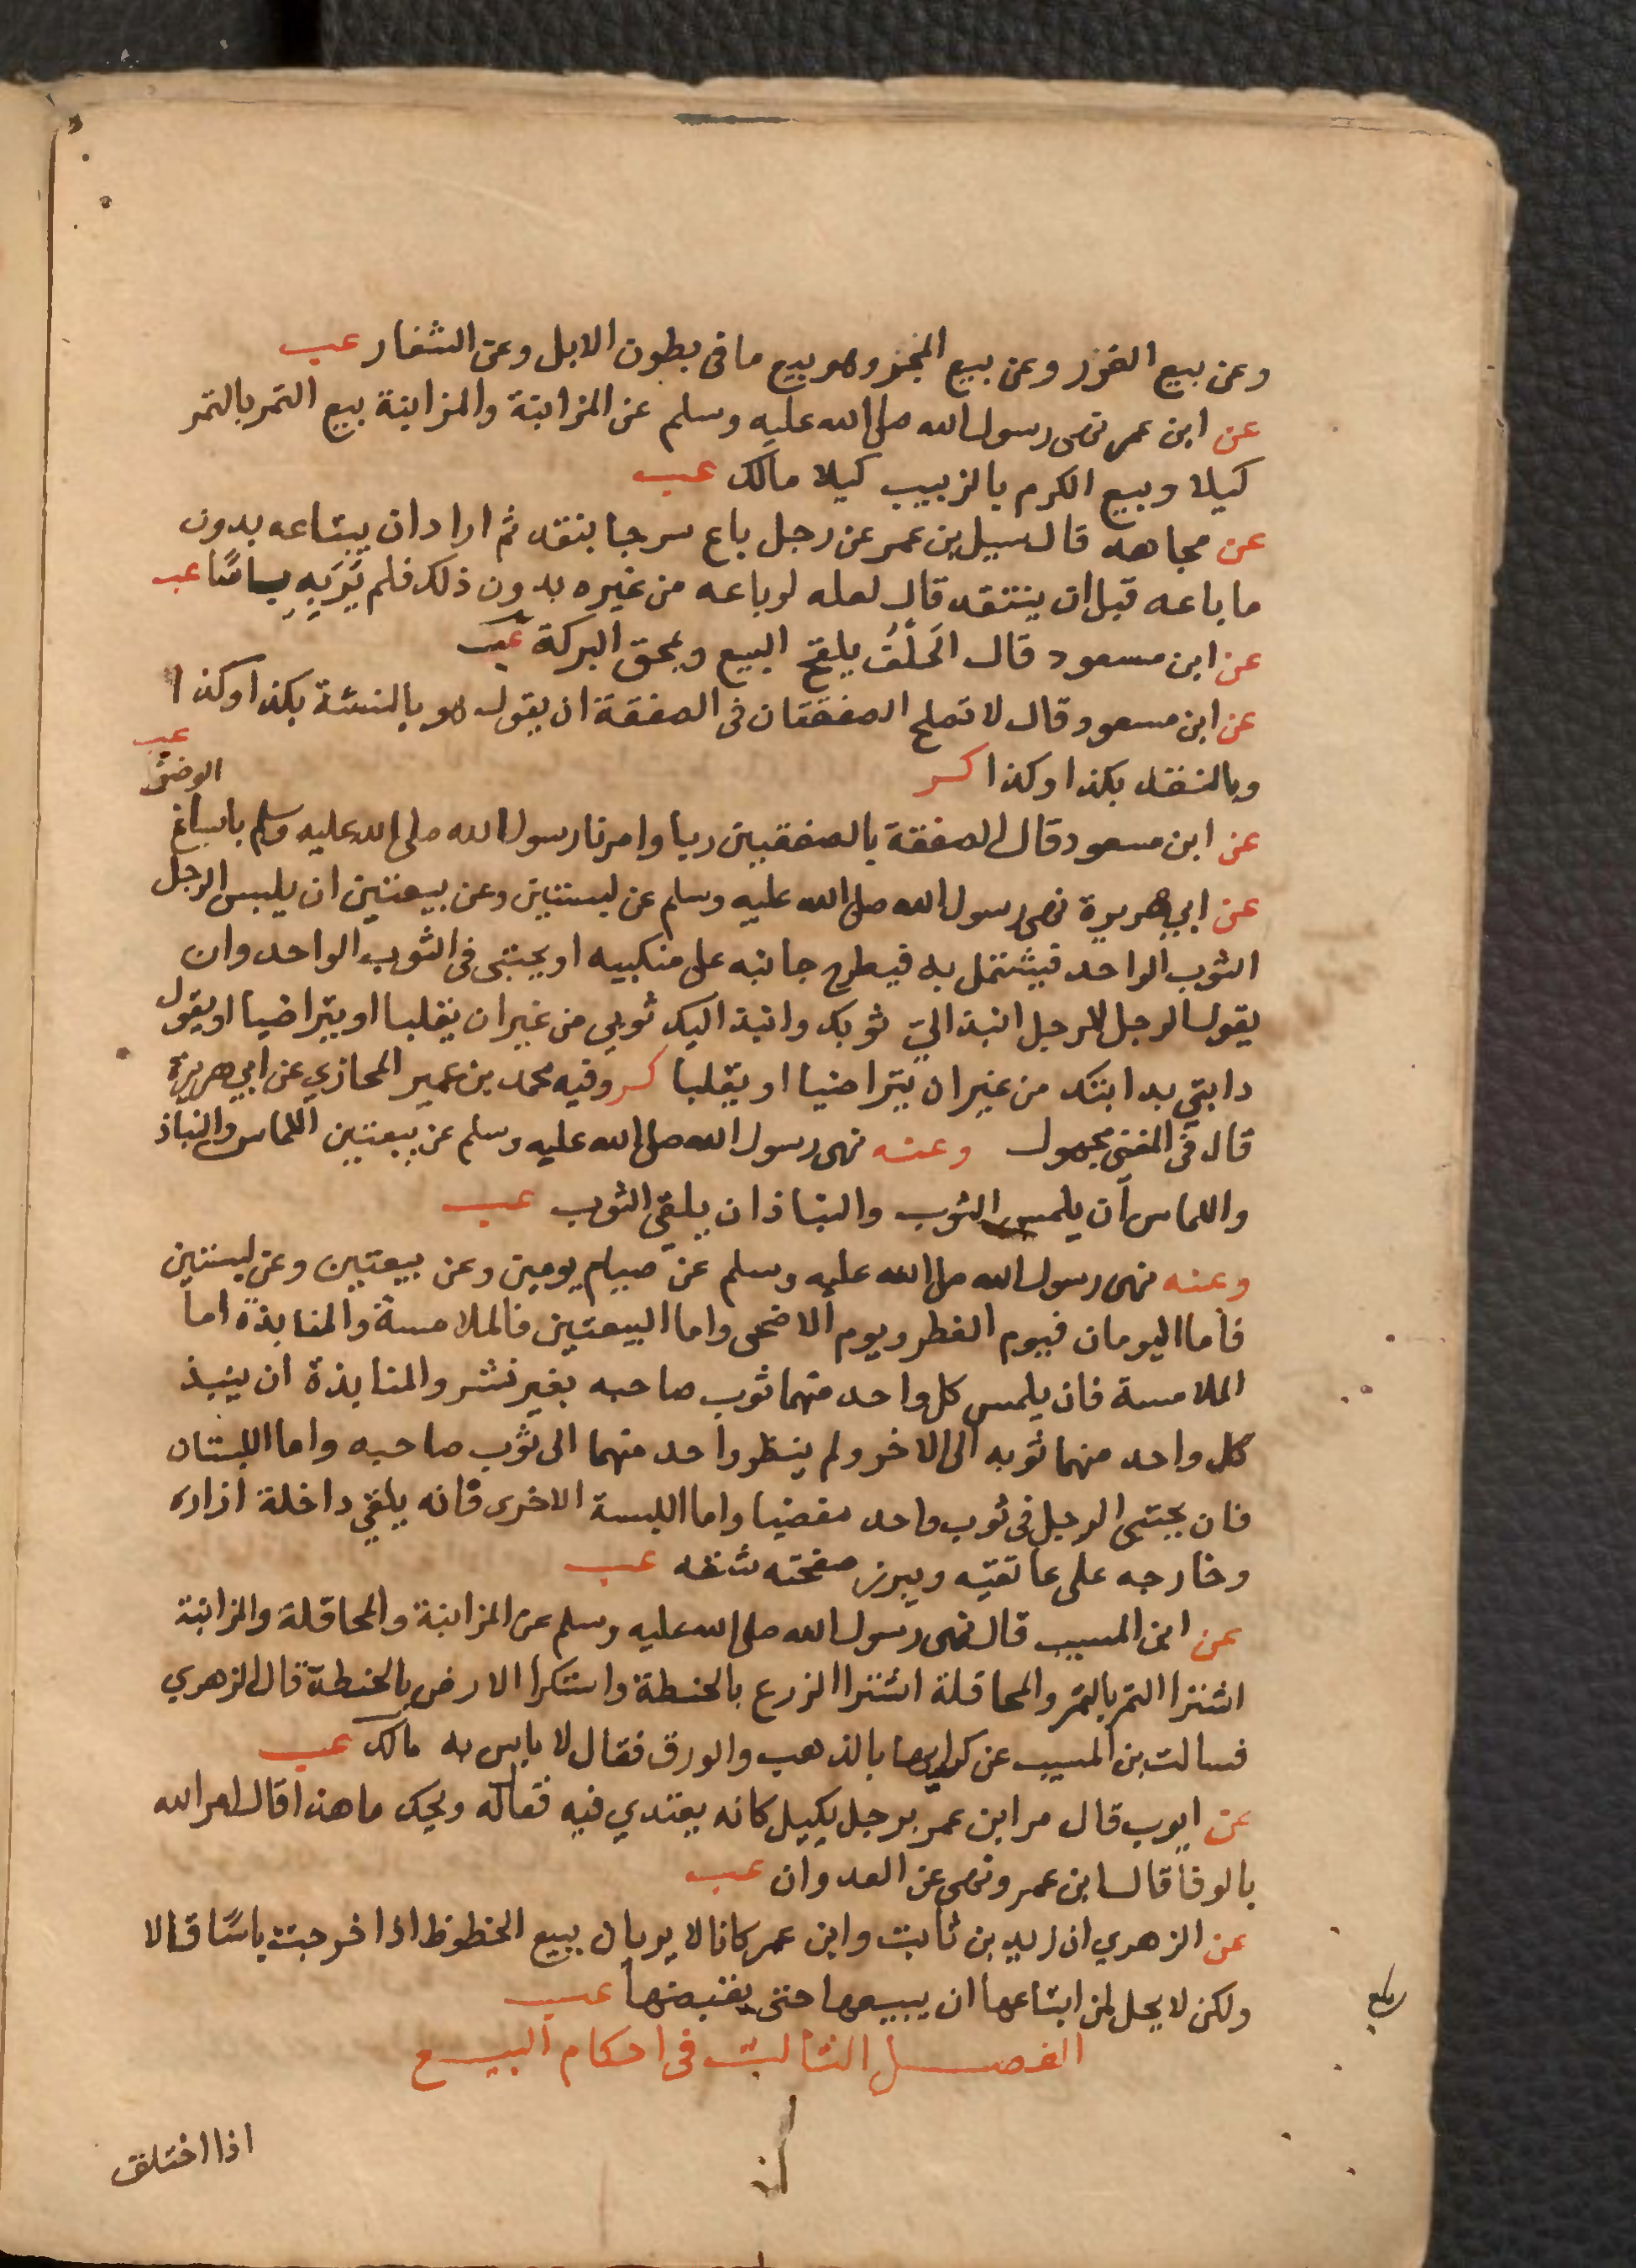 وعن بيع الغرر وعن بيع المجر وهو بيع ما فى بطون الابل وعن الشغار عب
عن ابن عمر نهى رسول الله صلى الله عليه وسلم عن المزابنة والمزابنة بيع التمر بالتمر
كيلا وبيع الكرم بالزبيب كيلا مالك عب
عن مجاهد قال سيل بن عمر عن رجل باع سرجا بنقد ثم اراد ان يبتاعه بدون
ما باعه قبل ان ينتقد قال لعله لو باعه من غيره بدون ذلك فلم يَرَ بِهِ باسًا عب
عن ابن مسعود قال الحَلْفُ يلقح البيع ويمحق البركة عب
عن ابن مسعود قال لا تصلح الصفقتان فى الصفقة ان يقول هو بالنسئة بكذا وكذا
وبالنقد بكذا وكذا كر
عب
الوضو
عن ابن مسعود قال الصفقة بالصفقتين ربا وامرنا رسول الله صلى الله عليه وسلم باسباغ
عن ابي هريرة نهى رسول الله صلى الله عليه وسلم عن لبستين وعن بيعتين ان يلبس الرجل
الثوب الواحد فيشتمل به فيطرح جانبه على منكبيه او يحتبى فى الثوب الواحد وان
يقول الرجل للرجل انبذ اليّ ثوبك وانبذ اليك ثوبي من غير ان يقلبا او يتراضيا او يقول
دابتي بدابتك من غير ان يتراضيا او يقلبا كر وفيه محمد بن عمير المحازي عن ابي هريرة
قال فى المغنى مجهول وعنه نهى رسول الله صلى الله عليه وسلم عن بيعتين اللماس والنباذ
واللماس ان يلمس الثوب والنباذ ان يلقي الثوب عب
وعنه نهى رسول الله صلى الله عليه وسلم عن صيام يومين وعن بيعتين وعن لبستين
فاما اليومان فيوم الفطر ويوم الاضحى واما البيعتين فالملامسة والمنابذة اما
الملامسة فان يلمس كل واحد منهما ثوب صاحبه بغير نشر والمنابذة ان ينبذ
كل واحد منهما ثوبه الى الاخر ولم ينظر واحد منهما الى ثوب صاحبه واما اللبستان
فان يحتبى الرجل فى ثوب واحد مفضيا واما اللبسة الاخرى فانه يلقي داخلة ازاره
وخارجه على عاتقيه ويبرز صفحته شقه عب
عن ابن المسيب قال نهى رسول الله صلى الله عليه وسلم عن المزابنة والمحاقلة والمزابنة
اشترا التمر بالتمر والمحاقلة اشترا الزرع بالحنطة واستكرا الارض بالحنطة قال الزهري
فسالت بن المسيب عن كرايها بالذهب والورق فقال لا باس به مالك عب
عن ايوب قال مر ابن عمر برجل يكيل كانه يعتدي فيه فقال له ويحك ما هذا قال امر الله
بالوفا قال ابن عمر ونهى عن العدوان عب
عن الزهري ان زيد بن ثابت وابن عمر كانا لا يريان ببيع الخطوظ اذا خرجت باسًا قالا
ولكن لا يحل لمن ابتاعها ان يبيعها حتى يقبضها عب
الفصل الثالث فى احكام البيع
اذا اختلف